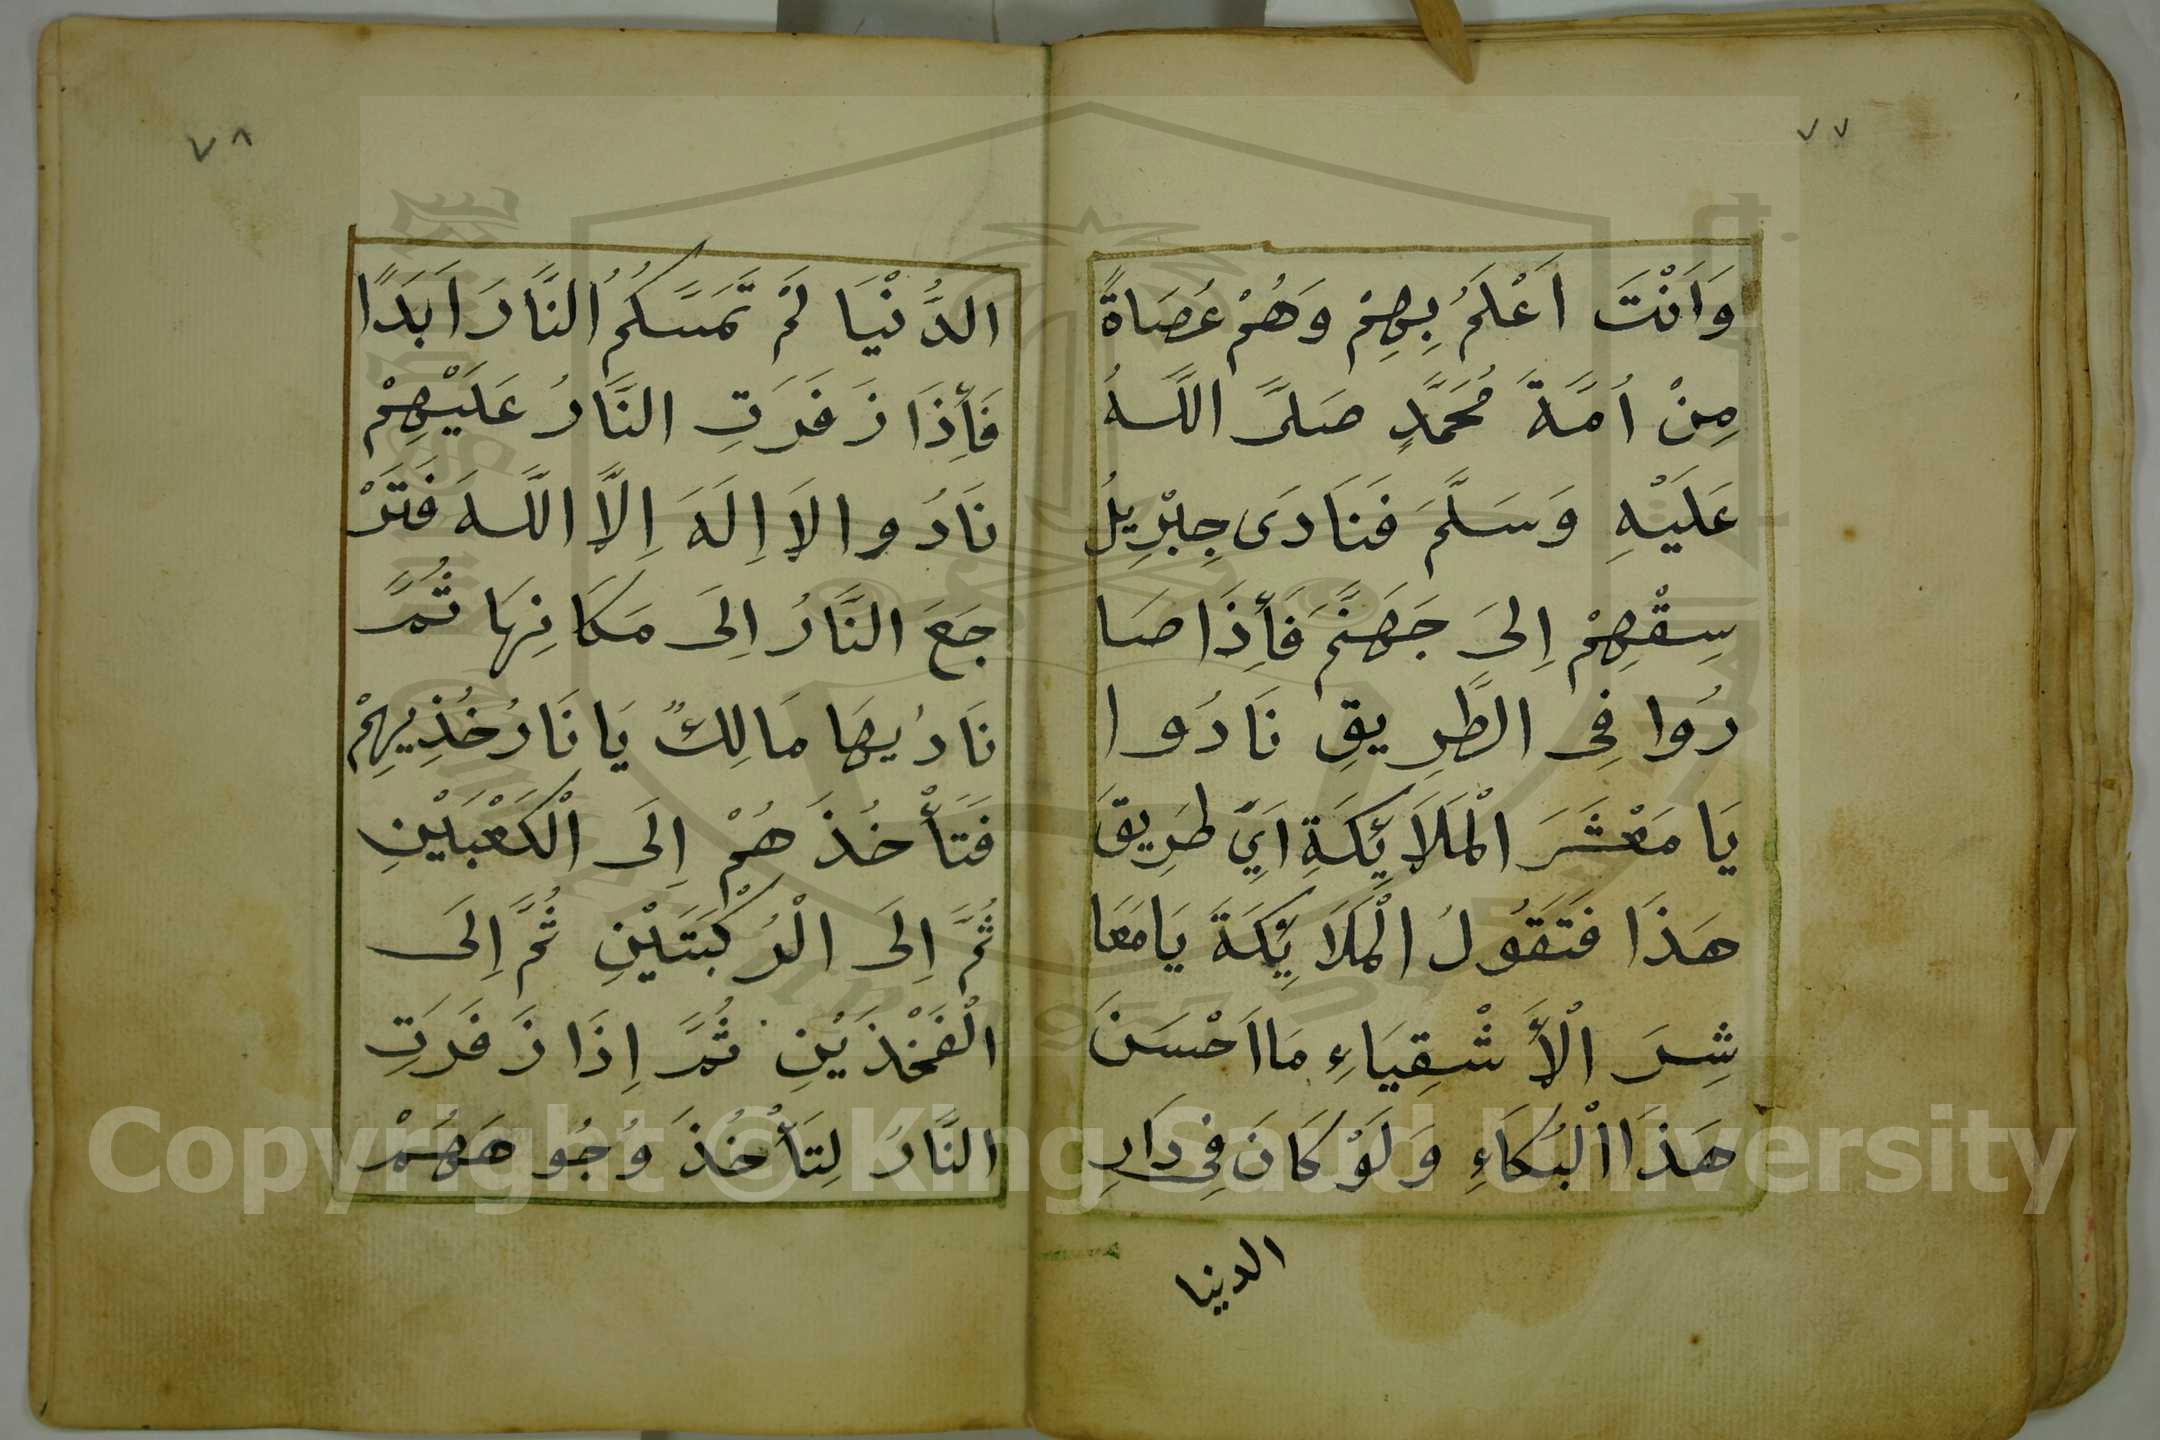 ٧٧
وَاَنْتَ اَعْلَمُ بِهِمْ وَهُمْ عُصَاةً
مِنْ اُمَّةَ مُحَمَّدٍ صَلَّى اللَّهُ
عَلَيْهِ وَسَلَّمَ فَنَادَى جِبْرِيلُ
سِقْهِمْ اِلَى جَهَنَّمَ فَأِذَا صَا
رُوا فِى الطَّرِيقِ نَادُوا
يَا مَعْشَرَ الْمَلَائِكَةِ اَيِّ طَرِيقَ
هَذَا فَتَقُولُ الْمَلَائِكَةَ يَا مَعَا
شِرَ الْأَشْقِيَاءِ مَا اَحْسَنَ
هَذَا الْبُكَاءِ وَلَوْ كَانَ فِى دَارِ
الدينا
٧٨
الدُّنْيَا لَمْ تَمَسَّكُمُ النَّارَ اَبَدًا
فَأِذَا زَفَرَتِ النَّارُ عَلَيْهِمْ
نَادُوا لاَ اِلَهَ اِلَّا اللَّهَ فَتَرْ
جَعَ النَّارُ اِلَى مَكَانِهَا ثُمَّ
نَادُيهَا مَالِكٌ يَا نَارُ خُذِيهِمْ
فَتَأْخُذَهُمْ اِلَى الْكَعْبَيْنِ
ثُمَّ اِلَى الْرُكْبَتَيْنِ ثُمَّ اِلَى
الْفَخْذَيْنِ ثُمَّ اِذَا زَفَرَتِ
النَّارُ لِتَأْخُذَ وُجُوهَهُمْ
Copyright © King Saud University